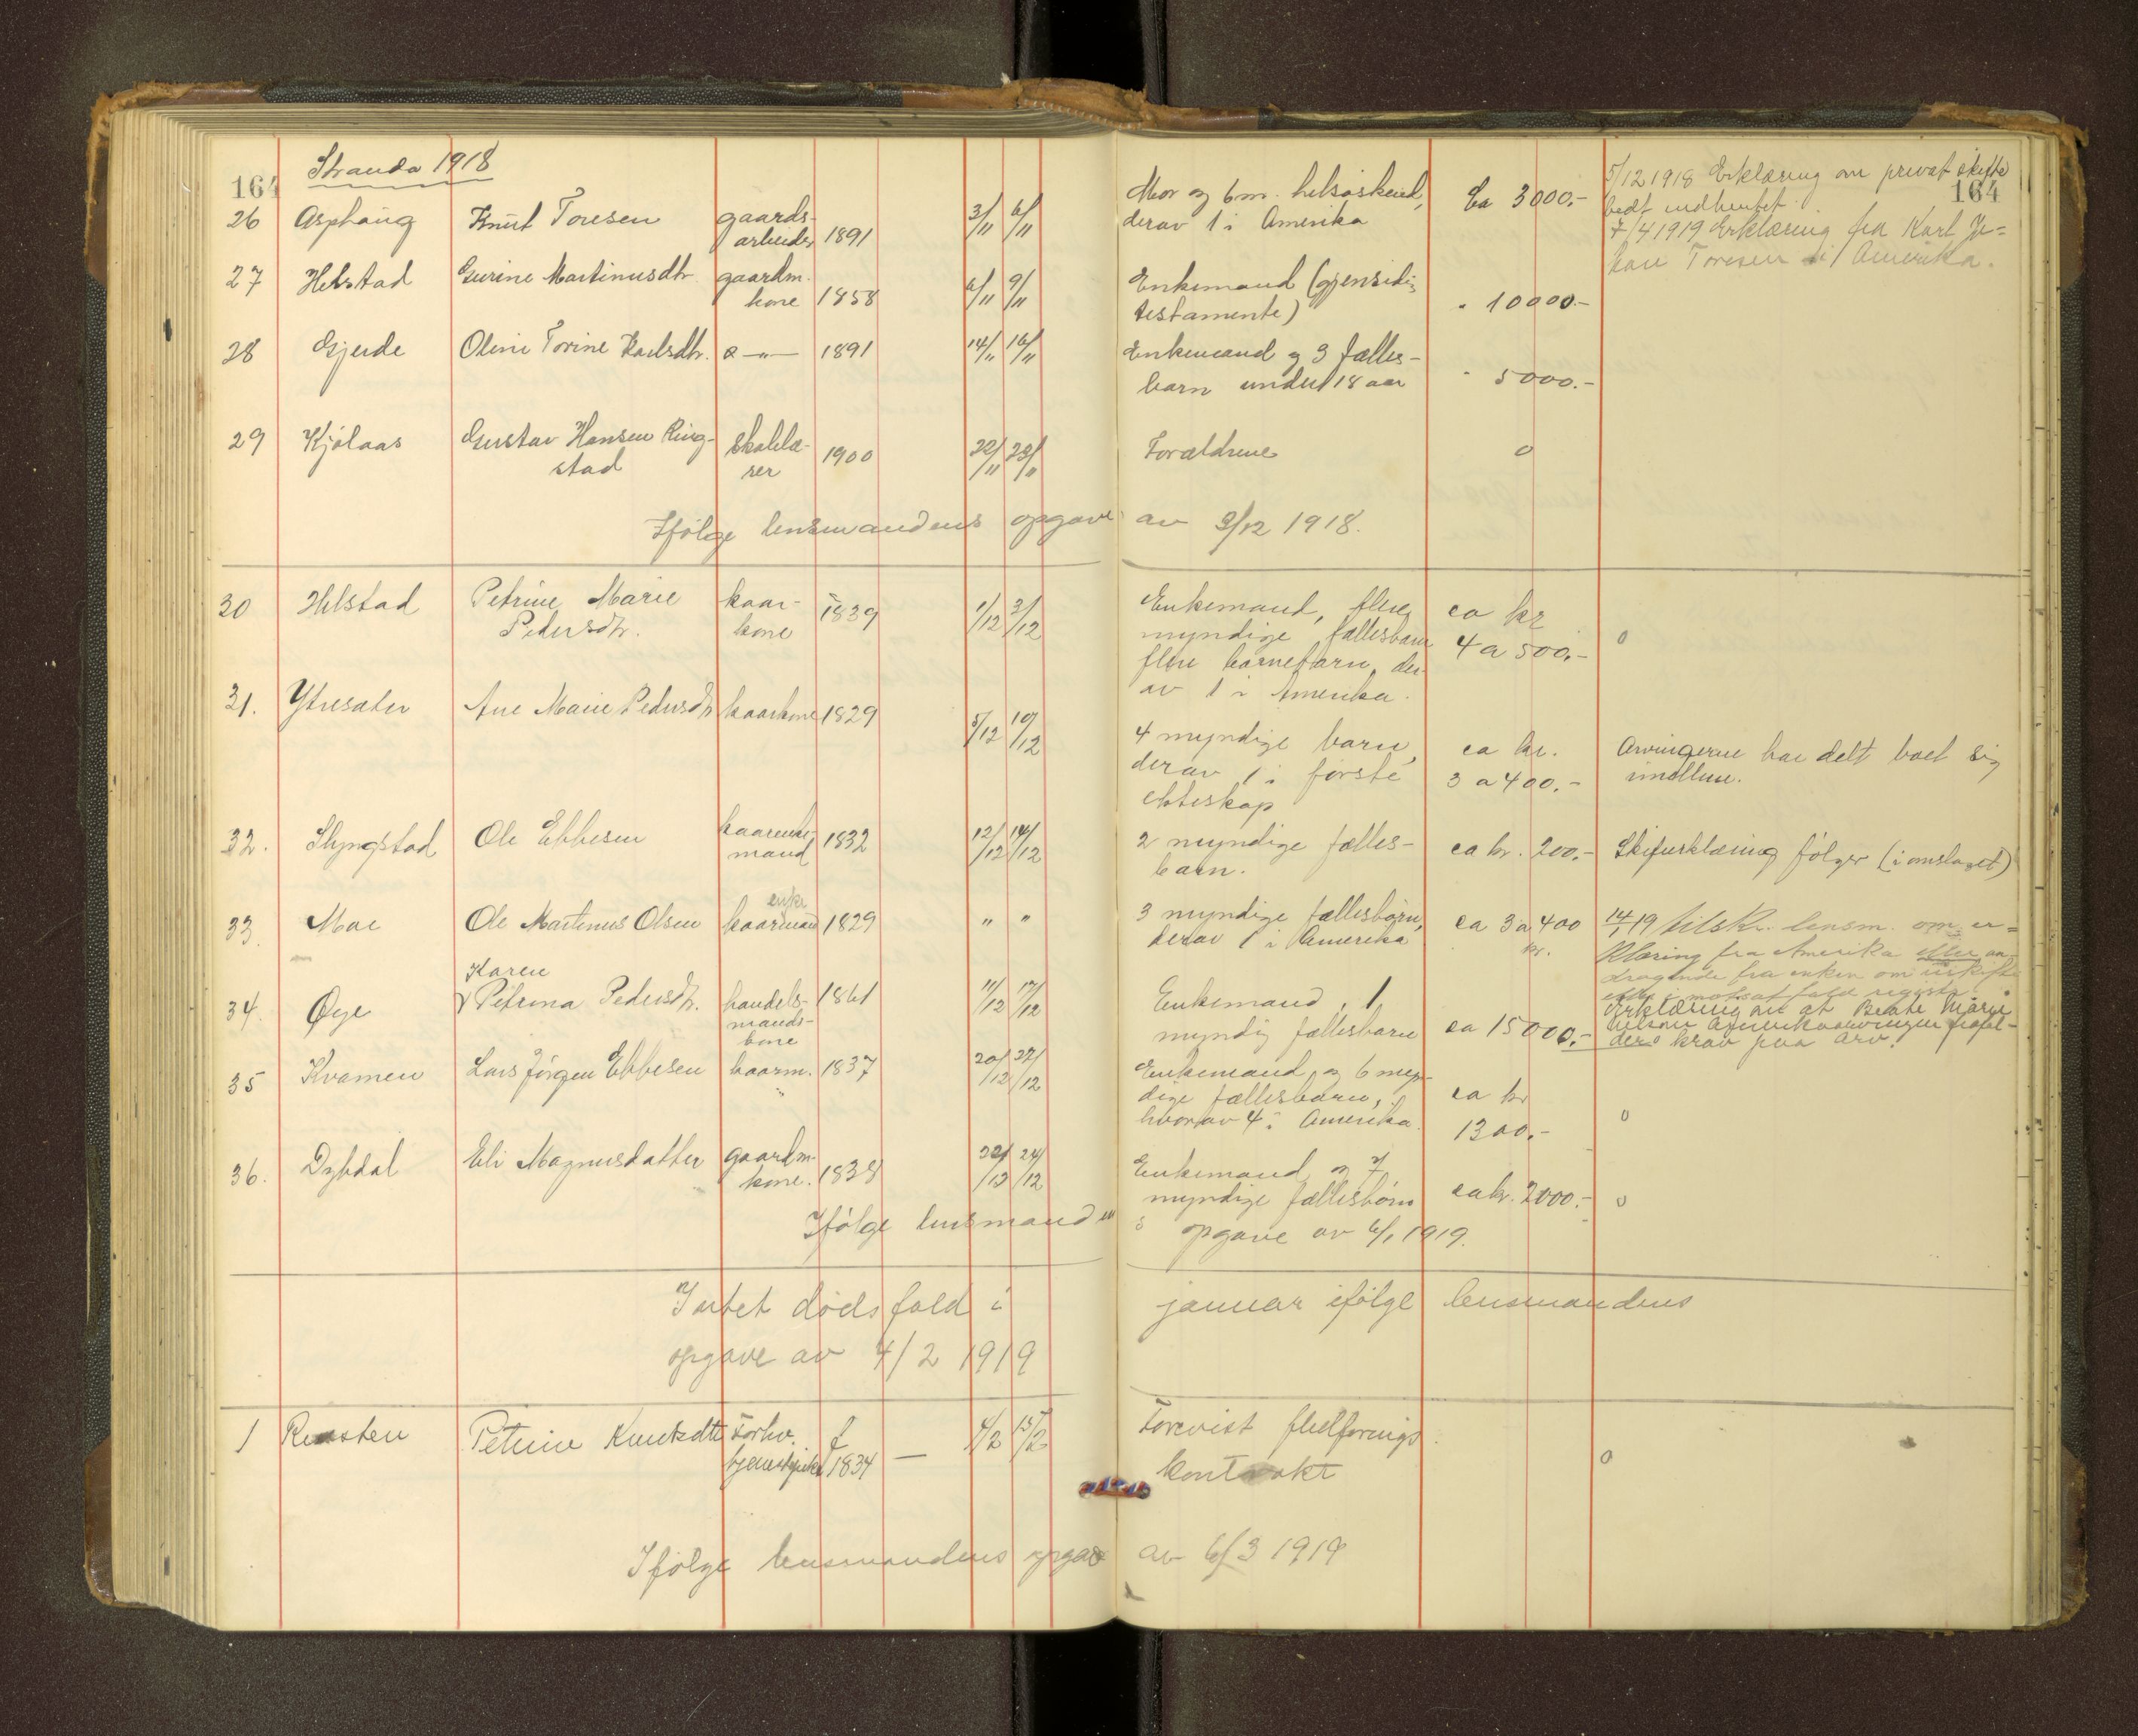 164
Stranda 1918
26 Asphaug Knut Toresen gaards- 3/11 6/11 Mor og 6 m. helsøskend, Ca 3000.- 5/12 1918 Erklæring om privat skifte
164
arbeider 1891 derav 1 i Amerika bedt indhentet.
7/4 1919 Erklæring fra Karl Jo=
han Toresen i Amerika.
27 Helstad Gurine Martinusdtr. gaardm. 6/11 9/11 Enkemand (gjensidig
kone 1858 testamente) " 10000.-
28 Gjerde Oline Torine Karlsdtr. " 1891 14/11 16/11 Enkemand og 3 fælles-
barn under 18 aar " 5000.-
29 Kjølaas Gustav Hansen Ring- skolelæ- 1900 22/11 23/11 Forældrene 0
stad rer
Ifølge lensmandens opgave av 3/12 1918.
30 Helstad Petrine Marie kaar- 1839 1/12 3/12 Enkemand, flere ca kr
Pedersdtr. kone myndige fællesbarn 4 a 500.- 0
flere barnebarn, der-
av 1 i Amerika.
31. Ytresæter Ane Marie Pedersdtr kaarkone 1829 5/12 10/12
4 myndige barn, ca kr. Arvingerne har delt boet sig
derav 1 i første 3 a 400.- imellem.
ekteskap
32. Slyngstad Ole Ebbesen kaarenke- 1832 12/12 14/12 2 myndige fælles- ca kr. 200.- Skifterklæring følger (i omslaget)
mand barn.
enke
33. Moe Ole Martinus Olsen kaarmand 1829 " " 3 myndige fællesbørn, ca 3 a 400 14/1 19 tilskr. lensm. om er=
derav 1 i Amerika kr. klæring fra Amerika eller an-
dragende fra enken om uskifte
eller i motsat fald registr.
Erklæring om at Beate Marie
Nelson Amerikaarvingen frafal-
der krav paa arv.
Karen
34. Øye Petrina Pedersdtr. handels- 1861 11/12 17/12 Enkemand, 1
mands- myndig fællesbarn ca 15000.-
kone
35 Kvamen Lars Jørgen Ebbesen kaarm. 1837 20/12 27/12 Enkemand og 6 myn-
" dige fællesbarn, ca kr
hvorav 4 i Amerika. 1300.- 0
36. Dybdal Eli Magnusdatter gaardm. 1838 22/12 24/12 Enkemand og 7
kone. myndige fællesbørn ca kr. 2000.- 0
Ifølge lensmandens opgave av 6/1 1919.
Intet dødsfald i januar ifølge lensmandens
opgave av 4/2 1919
1 Petrine Knutsdtr Forhv. f 4/2 15/2 Forevist
tjenestepike 1834 — kontrakt 0
Ifølge lensmandens opgave av 6/3 1919